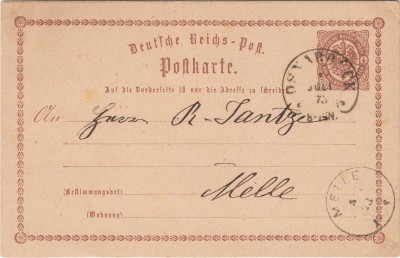 Deutsche Reichs-Post.
Postkarte.
Auf die Vorderseite ist nur die Adresse zu schreiben
OSNABRÜCK
JULI
75
8-9N.
An Herrn R. Jantzen
Melle
(Bestimmungsort)
(Wohnung)
MELLE